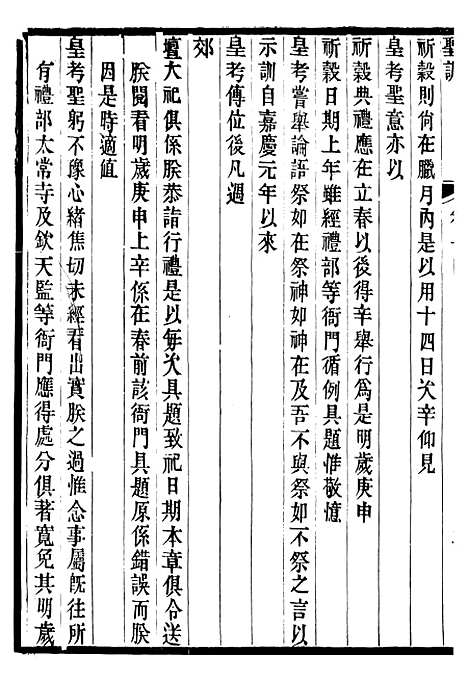 聖訓
祈穀則尙在臘月內是以用十四日次辛仰見
皇考聖意亦以
祈穀典禮應在立春以後得辛舉行爲是明歲庚申
祈穀日期上年雖經禮部等衙門循例具題惟敬憶
皇考嘗舉論語祭如在祭神如神在及吾不與祭如不祭之言以
示訓自嘉慶元年以來
皇考傳位後凡遇
郊
壇大祀俱係朕恭詣行禮是以每次具題致祀日期本章俱令送
朕閱看明歲庚申上辛係在春前該衙門具題原係錯誤而朕
因是時適值
皇考聖躬不豫心緒焦切未經看出實朕之過惟念事屬旣往所
有禮部太常寺及欽天監等衙門應得處分俱著寬免其明歲